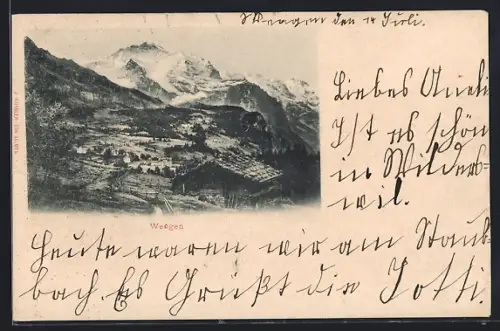 Wengen den 14 Juli.
Liebes Aneli
Ist es schön
in Wilders-
wil.
Wengen
Heute waren wir am Staub
bach. Es Grüßt die Totti.